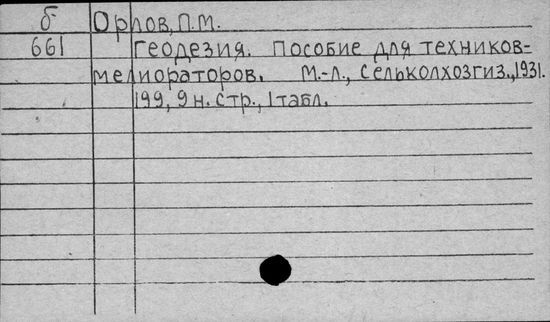 б Орлов, П.М.
661 Геодезия. Пособие для техников-
мелиораторов. М.-Л., Сельколхозгиз., 1931.
199, 9 н. стр., 1 табл.